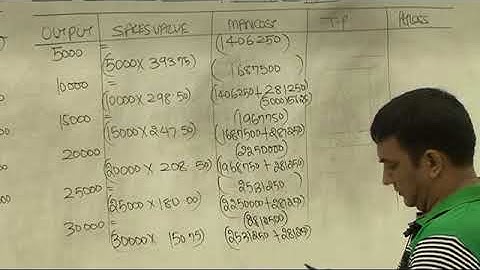 OUTPUT SALES VALUE MANCOST T.P P/LOSS
5000 = (1406250)
(5000 X 393.75)
10000 = 1687500
(10000 X 298.50) (1406250 + 281250)
(5000) 56.25
15000 = (1967750)
(15000 X 247.50) (1687500 + 281250)
20000 = (2250000)
(20000 X 208.50) (1968750 + 281250)
25000 = (2531250)
(25000 X 180.00) (2250000 + 281250)
30000 = (2812500)
(30000 X 150.75) (2531250 + 281250)